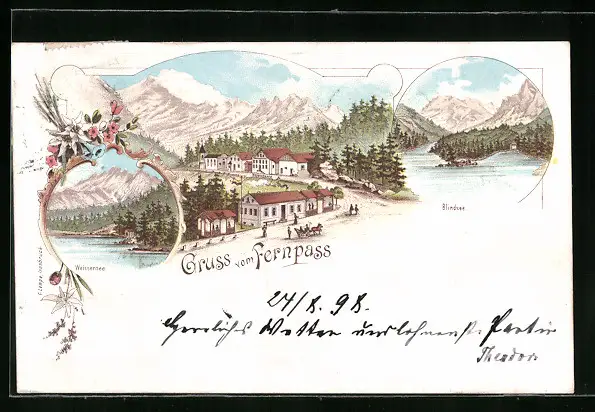 Blindsee
Weissensee
Gruss vom Fernpass
24/8. 98.
Herrliches Wetter und lohnenste Partie
Theodor